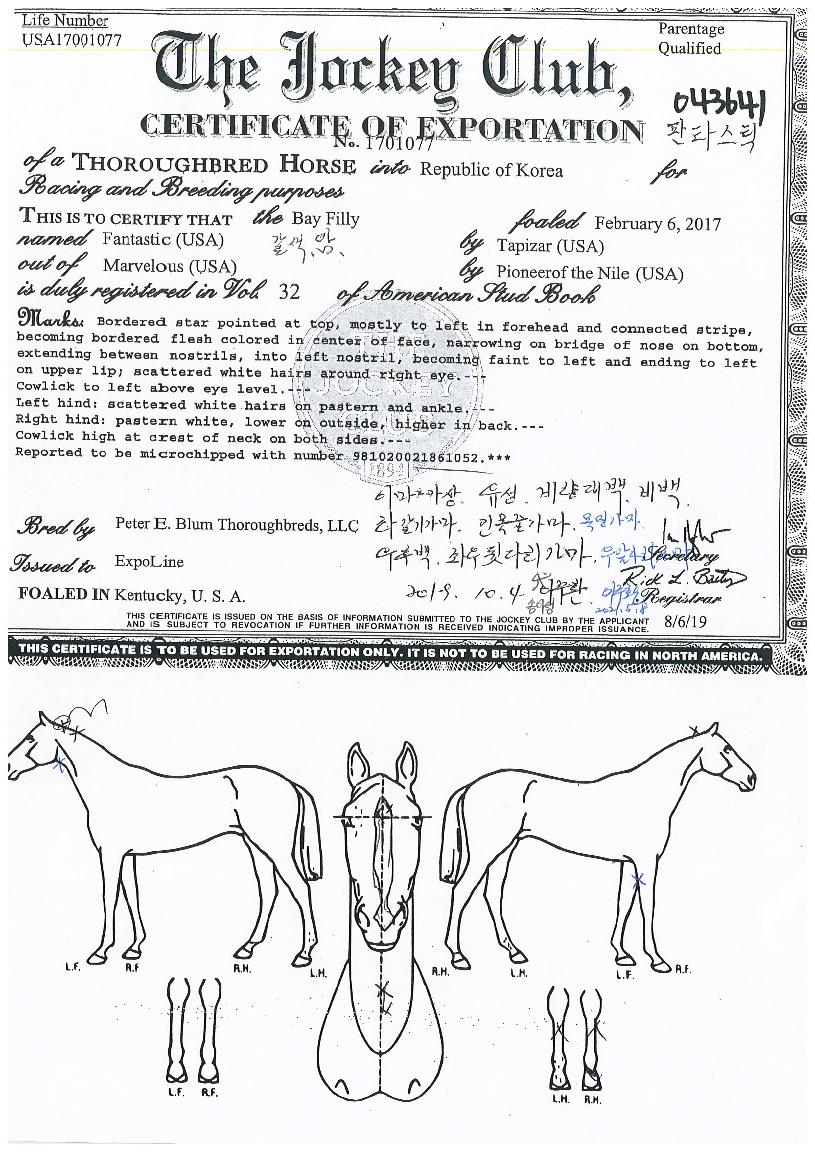 Life Number
USA17001077
Parentage
Qualified
The Jockey Club,
043641
판타스틱
CERTIFICATE OF EXPORTATION
No. 1701077
of a THOROUGHBRED HORSE into Republic of Korea for
Racing and Breeding purposes
THIS IS TO CERTIFY THAT the Bay Filly foaled February 6, 2017
named Fantastic (USA) 갈색. 암. by Tapizar (USA)
out of Marvelous (USA) by Pioneerof the Nile (USA)
is duly registered in Vol. 32 of American Stud Book
Marks: Bordered star pointed at top, mostly to left in forehead and connected stripe,
becoming bordered flesh colored in center of face, narrowing on bridge of nose on bottom,
extending between nostrils, into left nostril, becoming faint to left and ending to left
on upper lip; scattered white hairs around right eye.---
Cowlick to left above eye level.---
Left hind: scattered white hairs on pastern and ankle.---
Right hind: pastern white, lower on outside, higher in back.---
Cowlick high at crest of neck on both sides.---
Reported to be microchipped with number 981020021861052.***
JOCKEY
CLUB
1894
유성. 비량대백. 비백.
Bred by Peter E. Blum Thoroughbreds, LLC
Issued to ExpoLine
Secretary
좌우뒷다리가마.
FOALED IN Kentucky, U. S. A.
2019. 10. 4
Rick L. Bailey
Registrar
2021.5.8
THIS CERTIFICATE IS ISSUED ON THE BASIS OF INFORMATION SUBMITTED TO THE JOCKEY CLUB BY THE APPLICANT
AND IS SUBJECT TO REVOCATION IF FURTHER INFORMATION IS RECEIVED INDICATING IMPROPER ISSUANCE.
8/6/19
THIS CERTIFICATE IS TO BE USED FOR EXPORTATION ONLY. IT IS NOT TO BE USED FOR RACING IN NORTH AMERICA.
L.F. R.F R.H. L.H. R.H. L.H. L.F. R.F.
L.F. R.F. L.H. R.H.